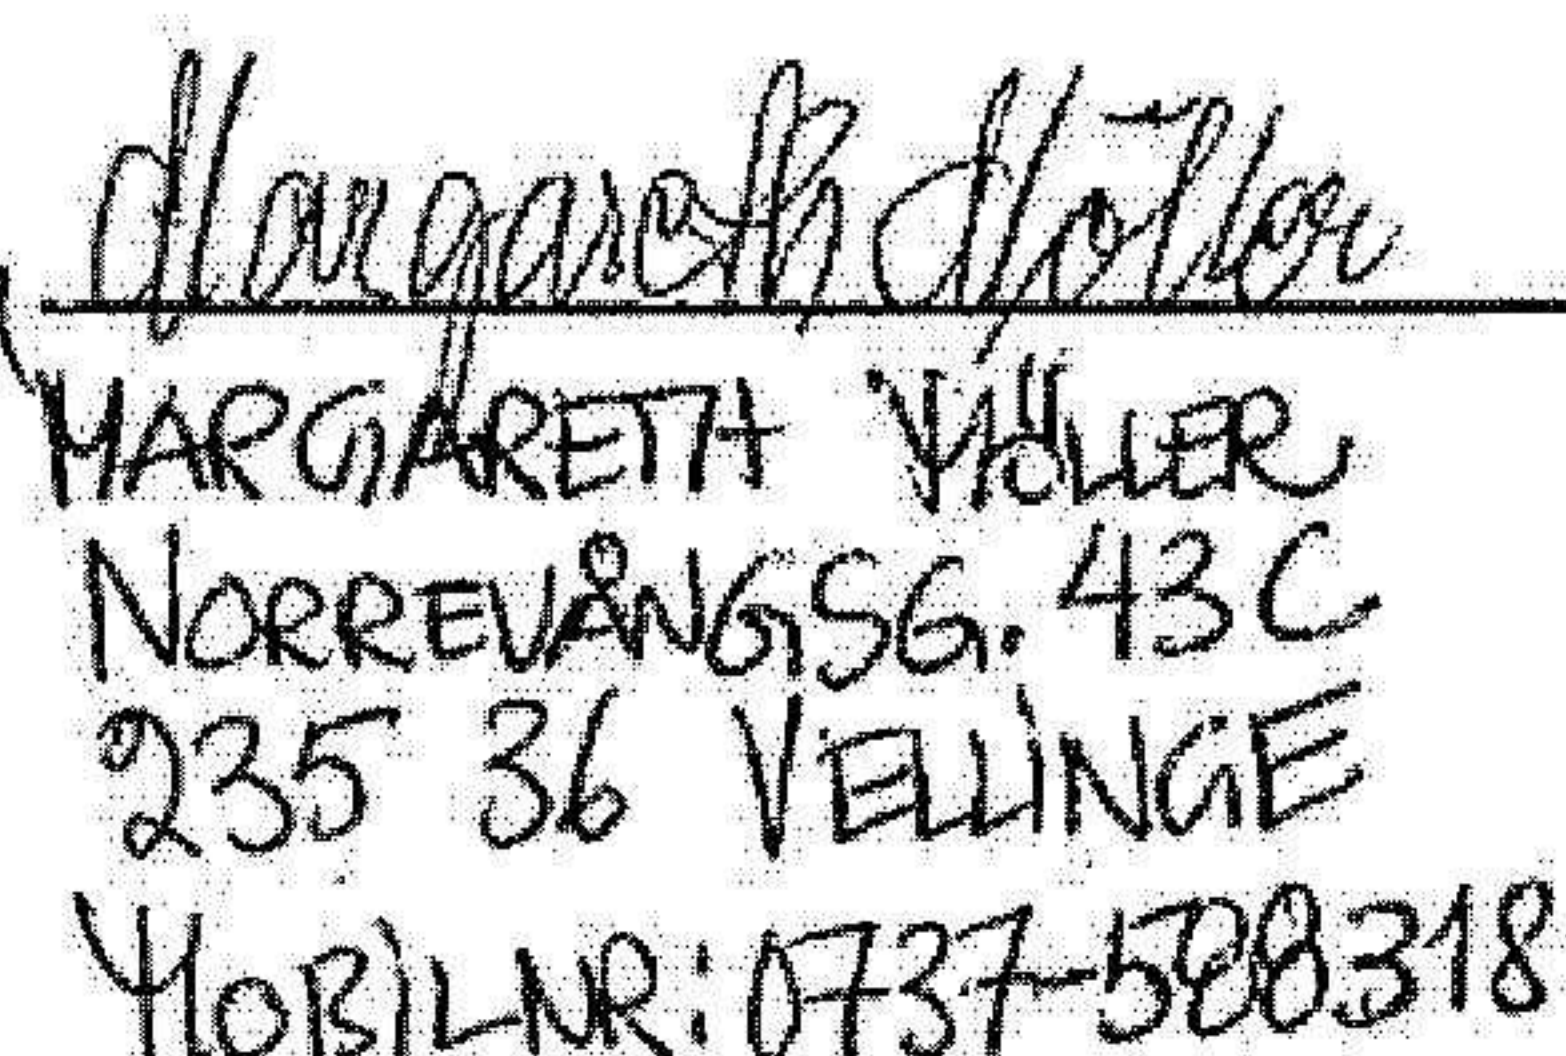 Margareth Möller
MARGARETH MÖLLER
NORREVÅNGSG. 43 C
235 36 VELLINGE
MOBILNR: 0737-588318